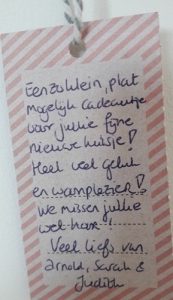 Een zo klein, plat
mogelijk cadeautje
voor jullie fijne
nieuwe huisje!
Heel veel geluk
en woonplezier!
We missen jullie
wel hoor!
Veel liefs van
Arnold, Sarah &
Judith